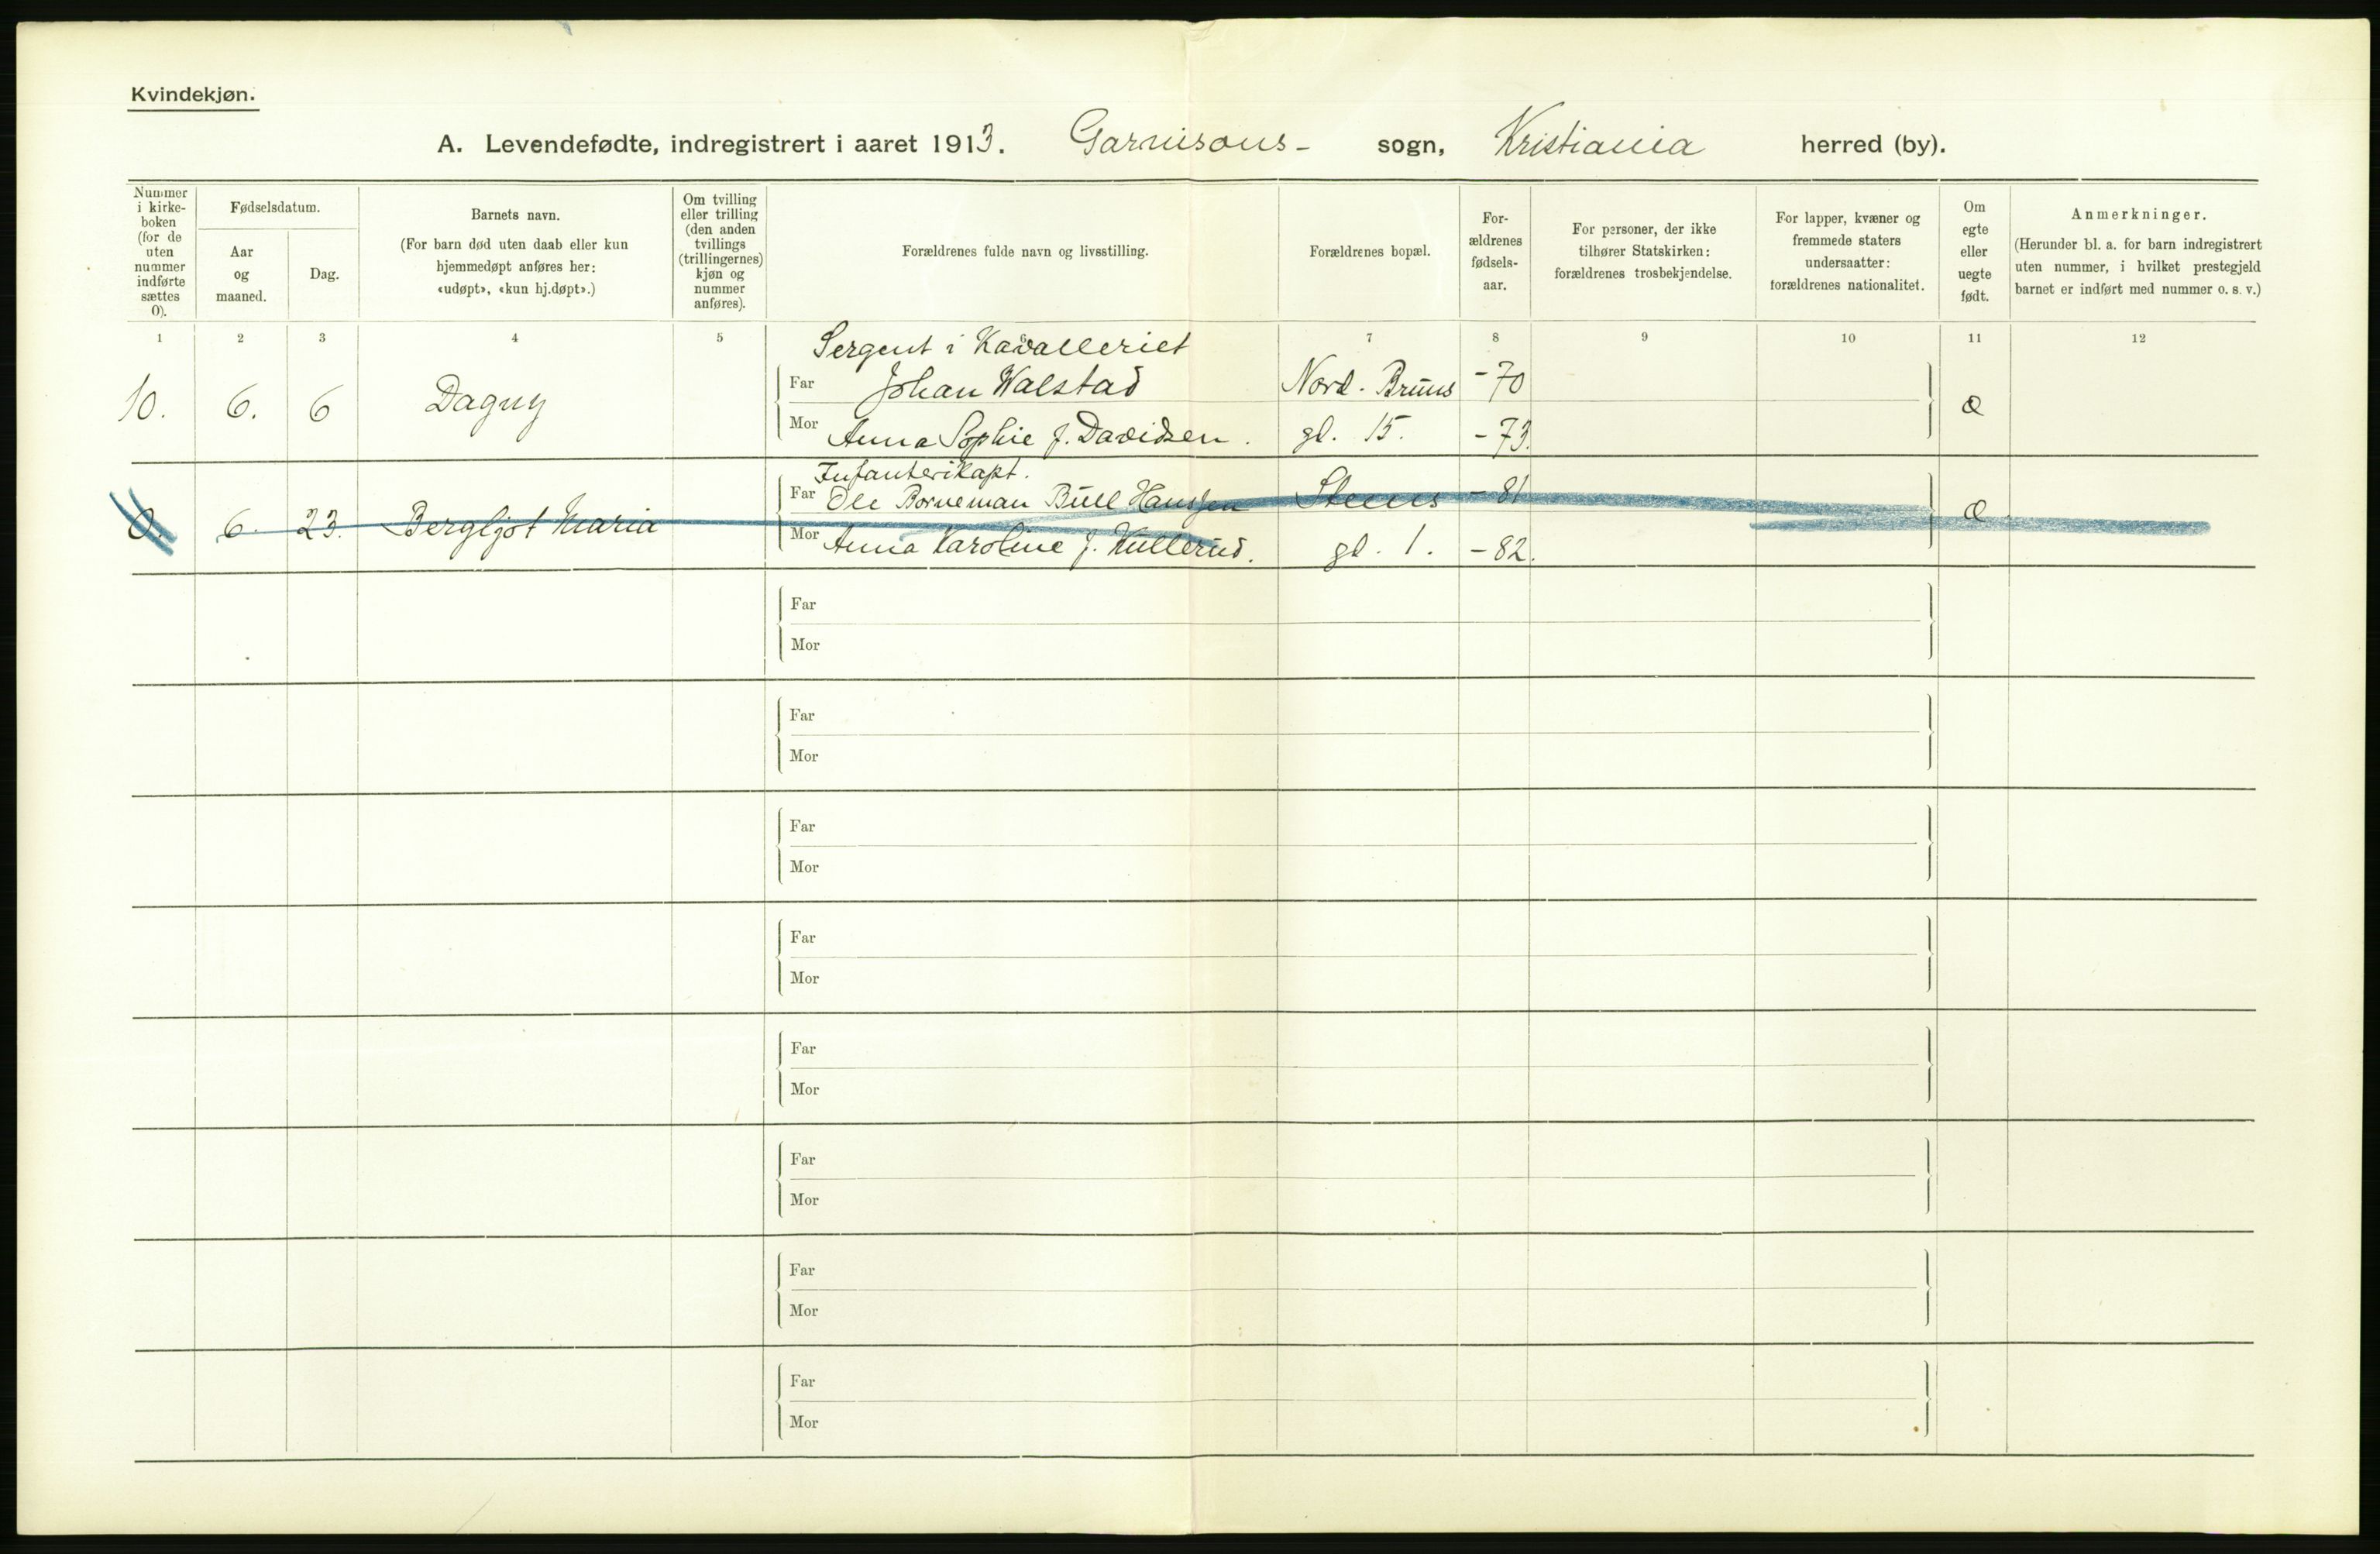 Kvindekjøn.
A. Levendefødte, indregistrert i aaret 1913. Garnisons- sogn, Kristiania herred (by).
Nummer i kirke-boken (for de uten nummer indførte sættes 0).
Fødselsdatum.
Aar og maaned.
Dag.
Barnets navn.
(For barn død uten daab eller kun hjemmedøpt anføres her: «udøpt», «kun hj.døpt».)
Om tvilling eller trilling (den anden tvillings (trillingernes) kjøn og nummer anføres).
Forældrenes fulde navn og livsstilling.
Forældrenes bopæl.
For-ældrenes fødsels-aar.
For personer, der ikke tilhører Statskirken: forældrenes trosbekjendelse.
For lapper, kvæner og fremmede staters undersaatter: forældrenes nationalitet.
Om egte eller uegte født.
Anmerkninger.
(Herunder bl. a. for barn indregistrert uten nummer, i hvilket prestegjeld barnet er indført med nummer o. s. v.)
1 2 3 4 5 6 7 8 9 10 11 12
Sergent i Kavalleriet
10. 6. 6 Dagny Far Johan Walstad Nord. Bruns -70 Æ
Mor Anna Sophie f. Davidsen. gd. 15. -73.
Infanterikapt.
0. 6. 23. Bergljot Maria Far Ole Borneman Bull Hanssen Stens -81 Æ
Mor Anna Karoline f. Hullerud. gd. 1. -82.
Far
Mor
Far
Mor
Far
Mor
Far
Mor
Far
Mor
Far
Mor
Far
Mor
Far
Mor